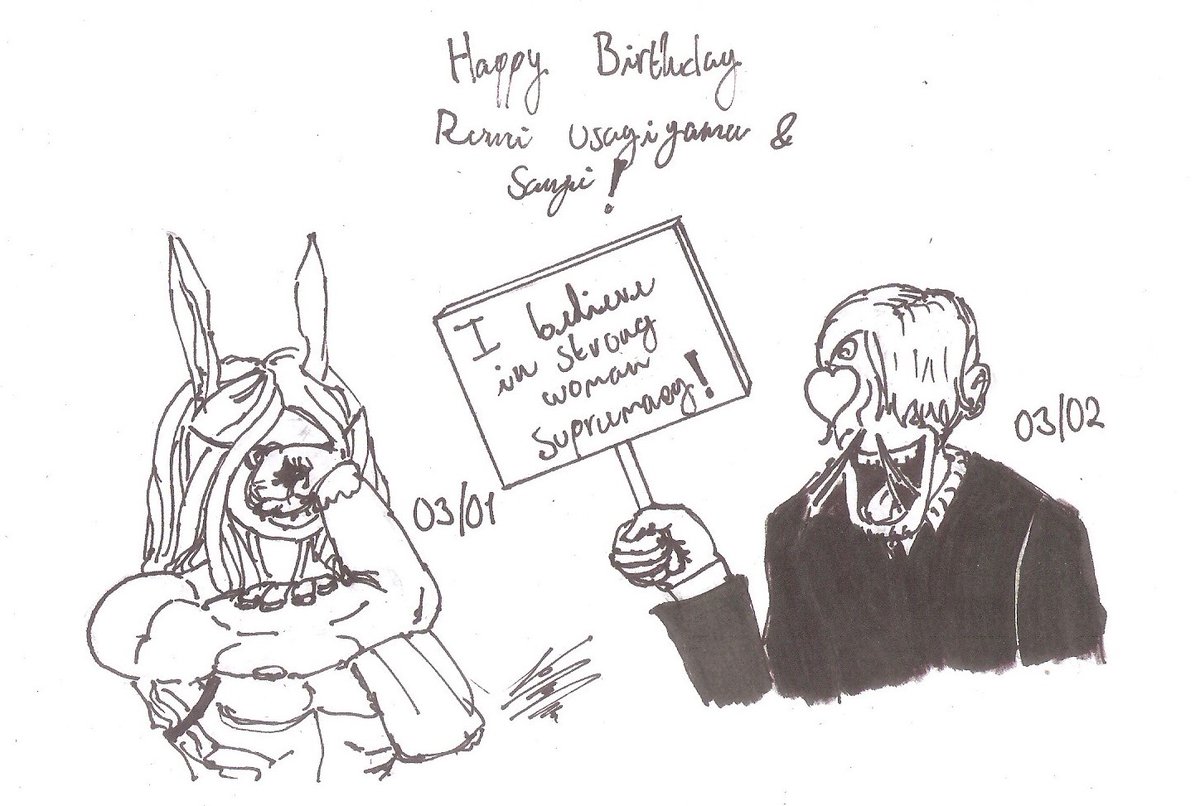 Happy Birthday
Rumi Usagiyama &
Sanji!
I believe
in strong
woman
supremacy!
03/01
03/02